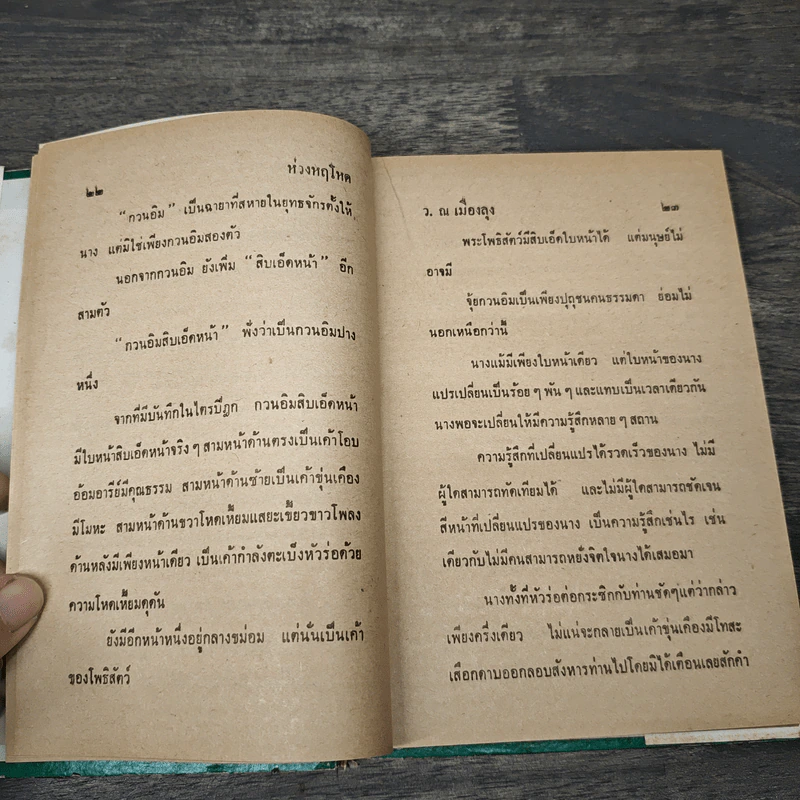 ๒๒ ห่วงหฤโหด
“กวนอิม” เป็นฉายาที่สหายในยุทธจักรตั้งให้
นาง แต่มิใช่เพียงกวนอิมสองตัว
นอกจากกวนอิม ยังเพิ่ม “สิบเอ็ดหน้า” อีก
สามตัว
“กวนอิมสิบเอ็ดหน้า” ฟังว่าเป็นกวนอิมปาง
หนึ่ง
จากที่มีบันทึกในไตรปิฎก กวนอิมสิบเอ็ดหน้า
มีใบหน้าสิบเอ็ดหน้าจริง ๆ สามหน้าด้านตรงเป็นเค้าโอบ
อ้อมอารีย์มีคุณธรรม สามหน้าด้านซ้ายเป็นเค้าขุ่นเคือง
มีโมหะ สามหน้าด้านขวาโหดเหี้ยมแสยะเขี้ยวขาวโพลง
ด้านหลังมีเพียงหน้าเดียว เป็นเค้ากำลังตะเบ็งหัวร่อด้วย
ความโหดเหี้ยมดุดัน
ยังมีอีกหน้าหนึ่งอยู่กลางขม่อม แต่นั่นเป็นเค้า
ของโพธิสัตว์
ว. ณ เมืองลุง ๒๓
พระโพธิสัตว์มีสิบเอ็ดใบหน้าได้ แต่มนุษย์ไม่
อาจมี
จุ้ยกวนอิมเป็นเพียงปุถุชนคนธรรมดา ย่อมไม่
นอกเหนือกว่านี้
นางแม้มีเพียงใบหน้าเดียว แต่ใบหน้าของนาง
แปรเปลี่ยนเป็นร้อย ๆ พัน ๆ และแทบเป็นเวลาเดียวกัน
นางพอจะเปลี่ยนให้มีความรู้สึกหลาย ๆ สถาน
ความรู้สึกที่เปลี่ยนแปรได้รวดเร็วของนาง ไม่มี
ผู้ใดสามารถทัดเทียมได้ และไม่มีผู้ใดสามารถชัดเจน
สีหน้าที่เปลี่ยนแปรของนาง เป็นความรู้สึกเช่นไร เช่น
เดียวกับไม่มีคนสามารถหยั่งจิตใจนางได้เสมอมา
นางทั้งที่หัวร่อต่อกระซิกกับท่านชัดๆแต่ว่ากล่าว
เพียงครึ่งเดียว ไม่แน่จะกลายเป็นเค้าขุ่นเคืองมีโทสะ
เสือกดาบออกลอบสังหารท่านไปโดยมิได้เตือนเลยสักคำ